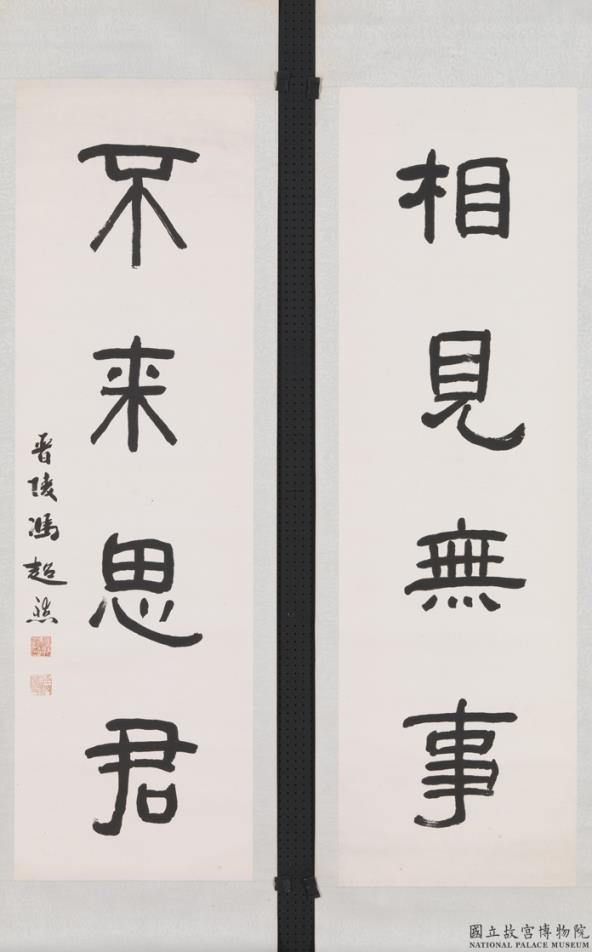 相見無事
不来思君
晋陵馮超然
國立故宮博物院
NATIONAL PALACE MUSEUM